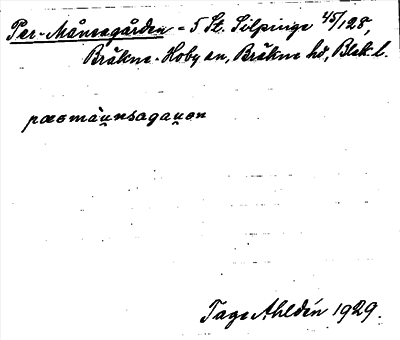 Per-Månsagården = 5 St. Silpinge 45/128,
Bräkne-Hoby sn, Bräkne hd, Blek. l.
pæsmànsagaɳen
Tage Ahldén 1929.